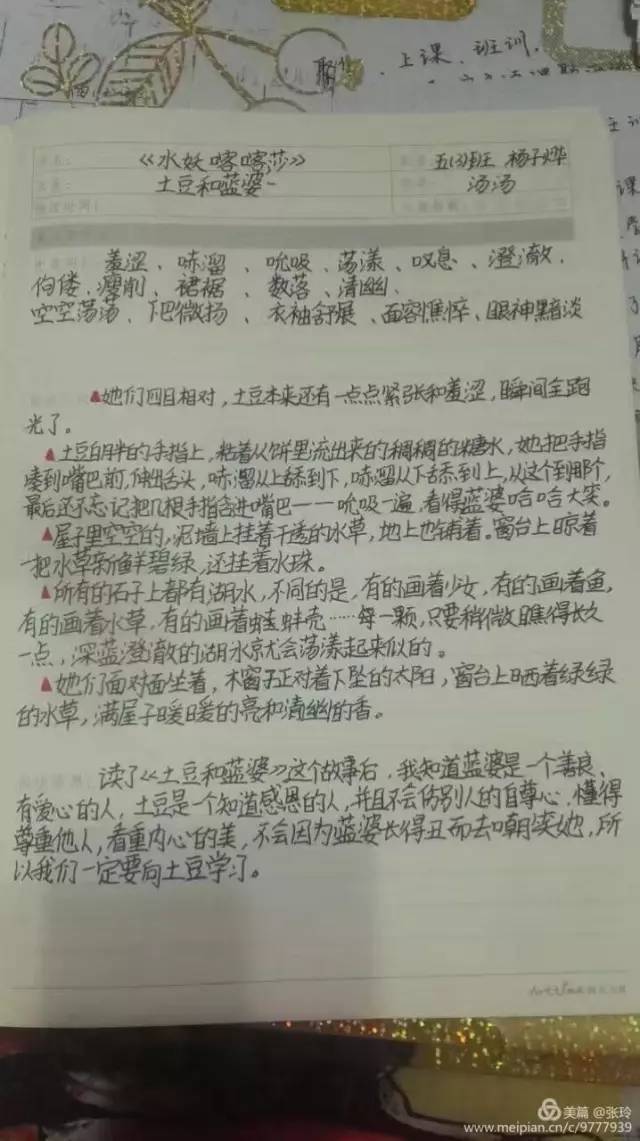 上课、班训、
《水妖喀喀莎》 五(3)班 杨子烨
土豆和蓝婆 汤汤
羞涩、哧溜、吮吸、荡漾、叹息、澄澈、
佝偻、瘦削、裙裾、数落、清幽、
空空荡荡、下巴微扬、衣袖舒展、面容憔悴、眼神黯淡
▲她们四目相对,土豆本来还有一点点紧张和羞涩,瞬间全跑
光了。
▲土豆胖胖的手指上,粘着从饼里流出来的稠稠的糖水,她把手指
凑到嘴巴前,伸出舌头,哧溜从上舔到下,哧溜从下舔到上,从这个到那个,
最后还不忘记把几根手指含进嘴巴一一吮吸一遍,看得蓝婆哈哈大笑。
▲屋子里空空的,泥墙上挂着干透的水草,地上也铺着。窗台上晾着
一把水草新鲜碧绿,还挂着水珠。
▲所有的石子上都有湖水,不同的是,有的画着少女,有的画着鱼,
有的画着水草,有的画着蛙蚌壳……每一颗,只要稍微瞧得长久
一点,深蓝澄澈的湖水就会荡漾起来似的。
▲她们面对面坐着,木窗子正对着下坠的太阳,窗台上晒着绿绿
的水草,满屋子暖暖的亮和清幽的香。
读了《土豆和蓝婆》这个故事后,我知道蓝婆是一个善良、
有爱心的人,土豆是一个知道感恩的人,并且不会伤别人的自尊心,懂得
尊重他人,看重内心的美,不会因为蓝婆长得丑而去嘲笑她,所
以我们一定要向土豆学习。
美篇 @张玲
www.meipian.cn/c/9777939